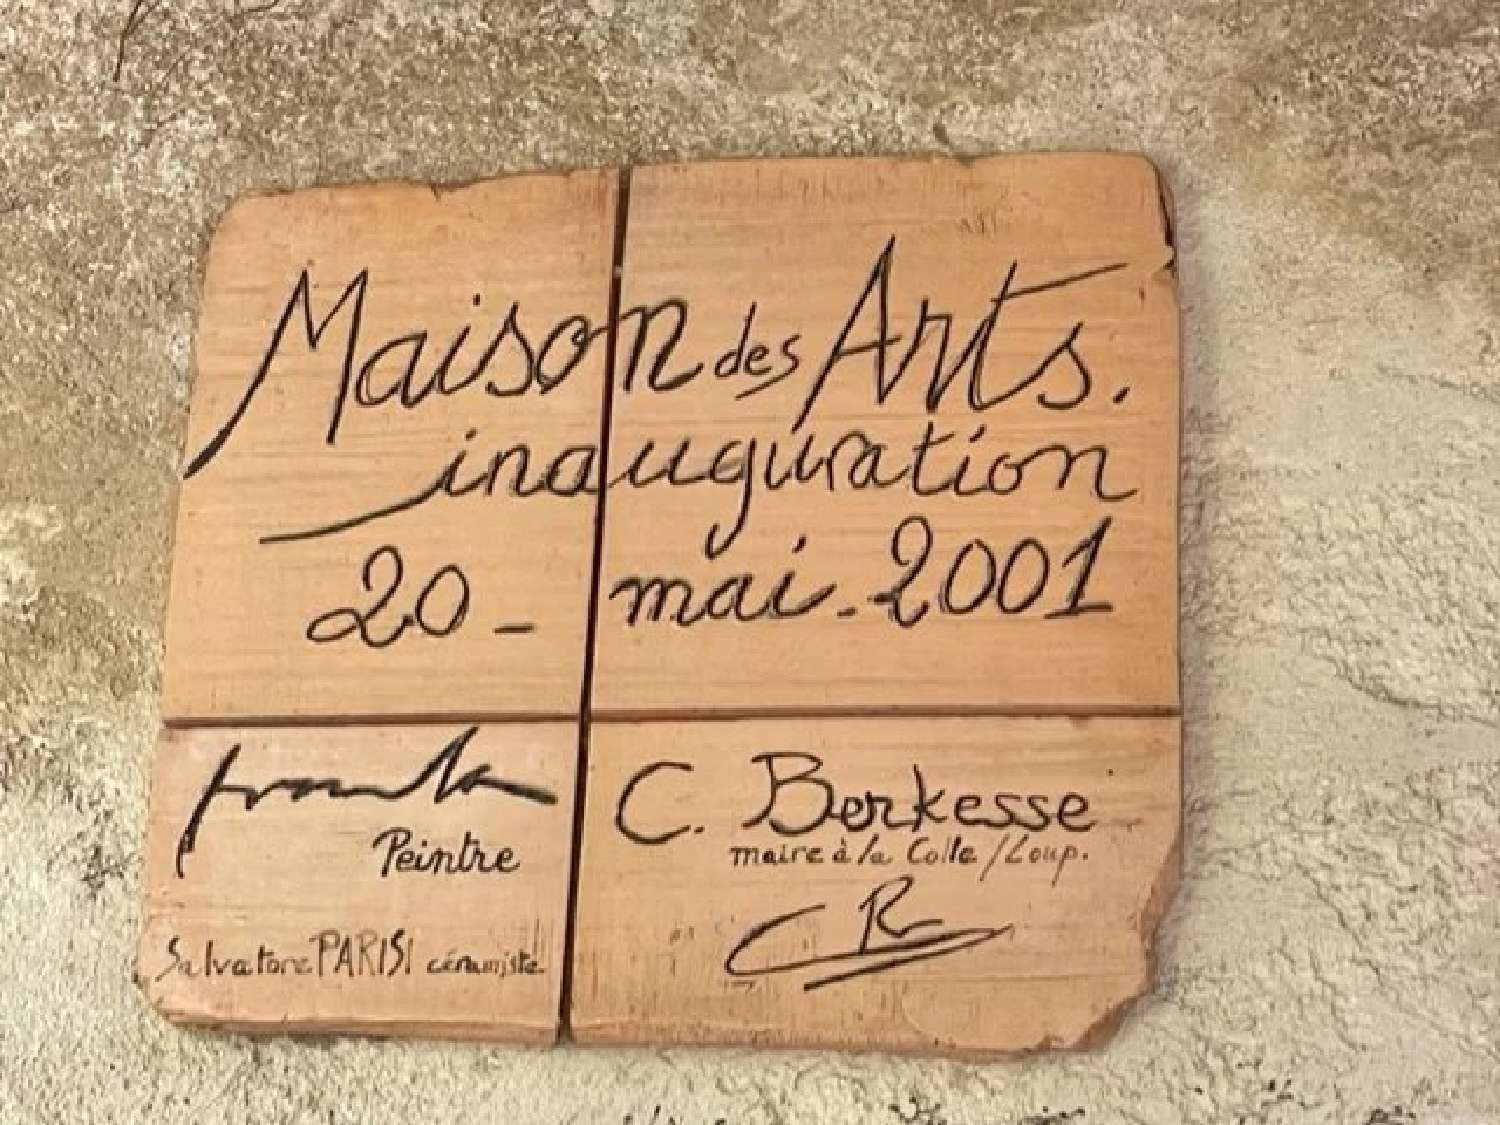 Maison des Arts.
inauguration
20 - mai - 2001
Peintre
Salvatore PARISI céramiste
C. Berkesse
maire à la Colle/Loup.